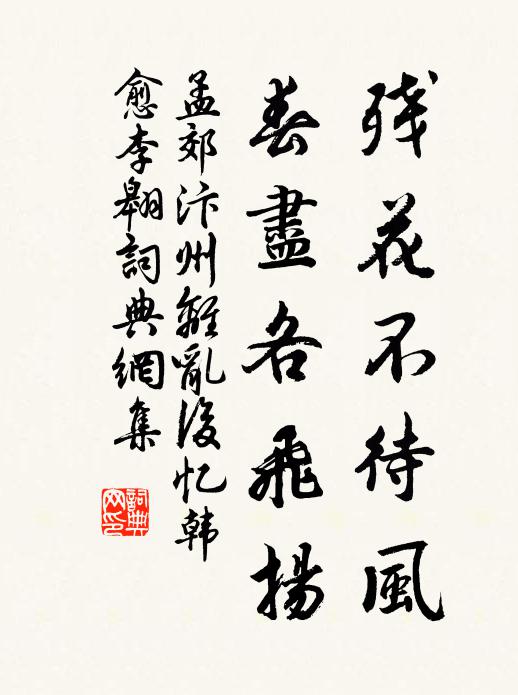 残花不待風
春盡各飛揚
孟郊汴州離亂後忆韩
愈李翱詞典網集
詞典
网印